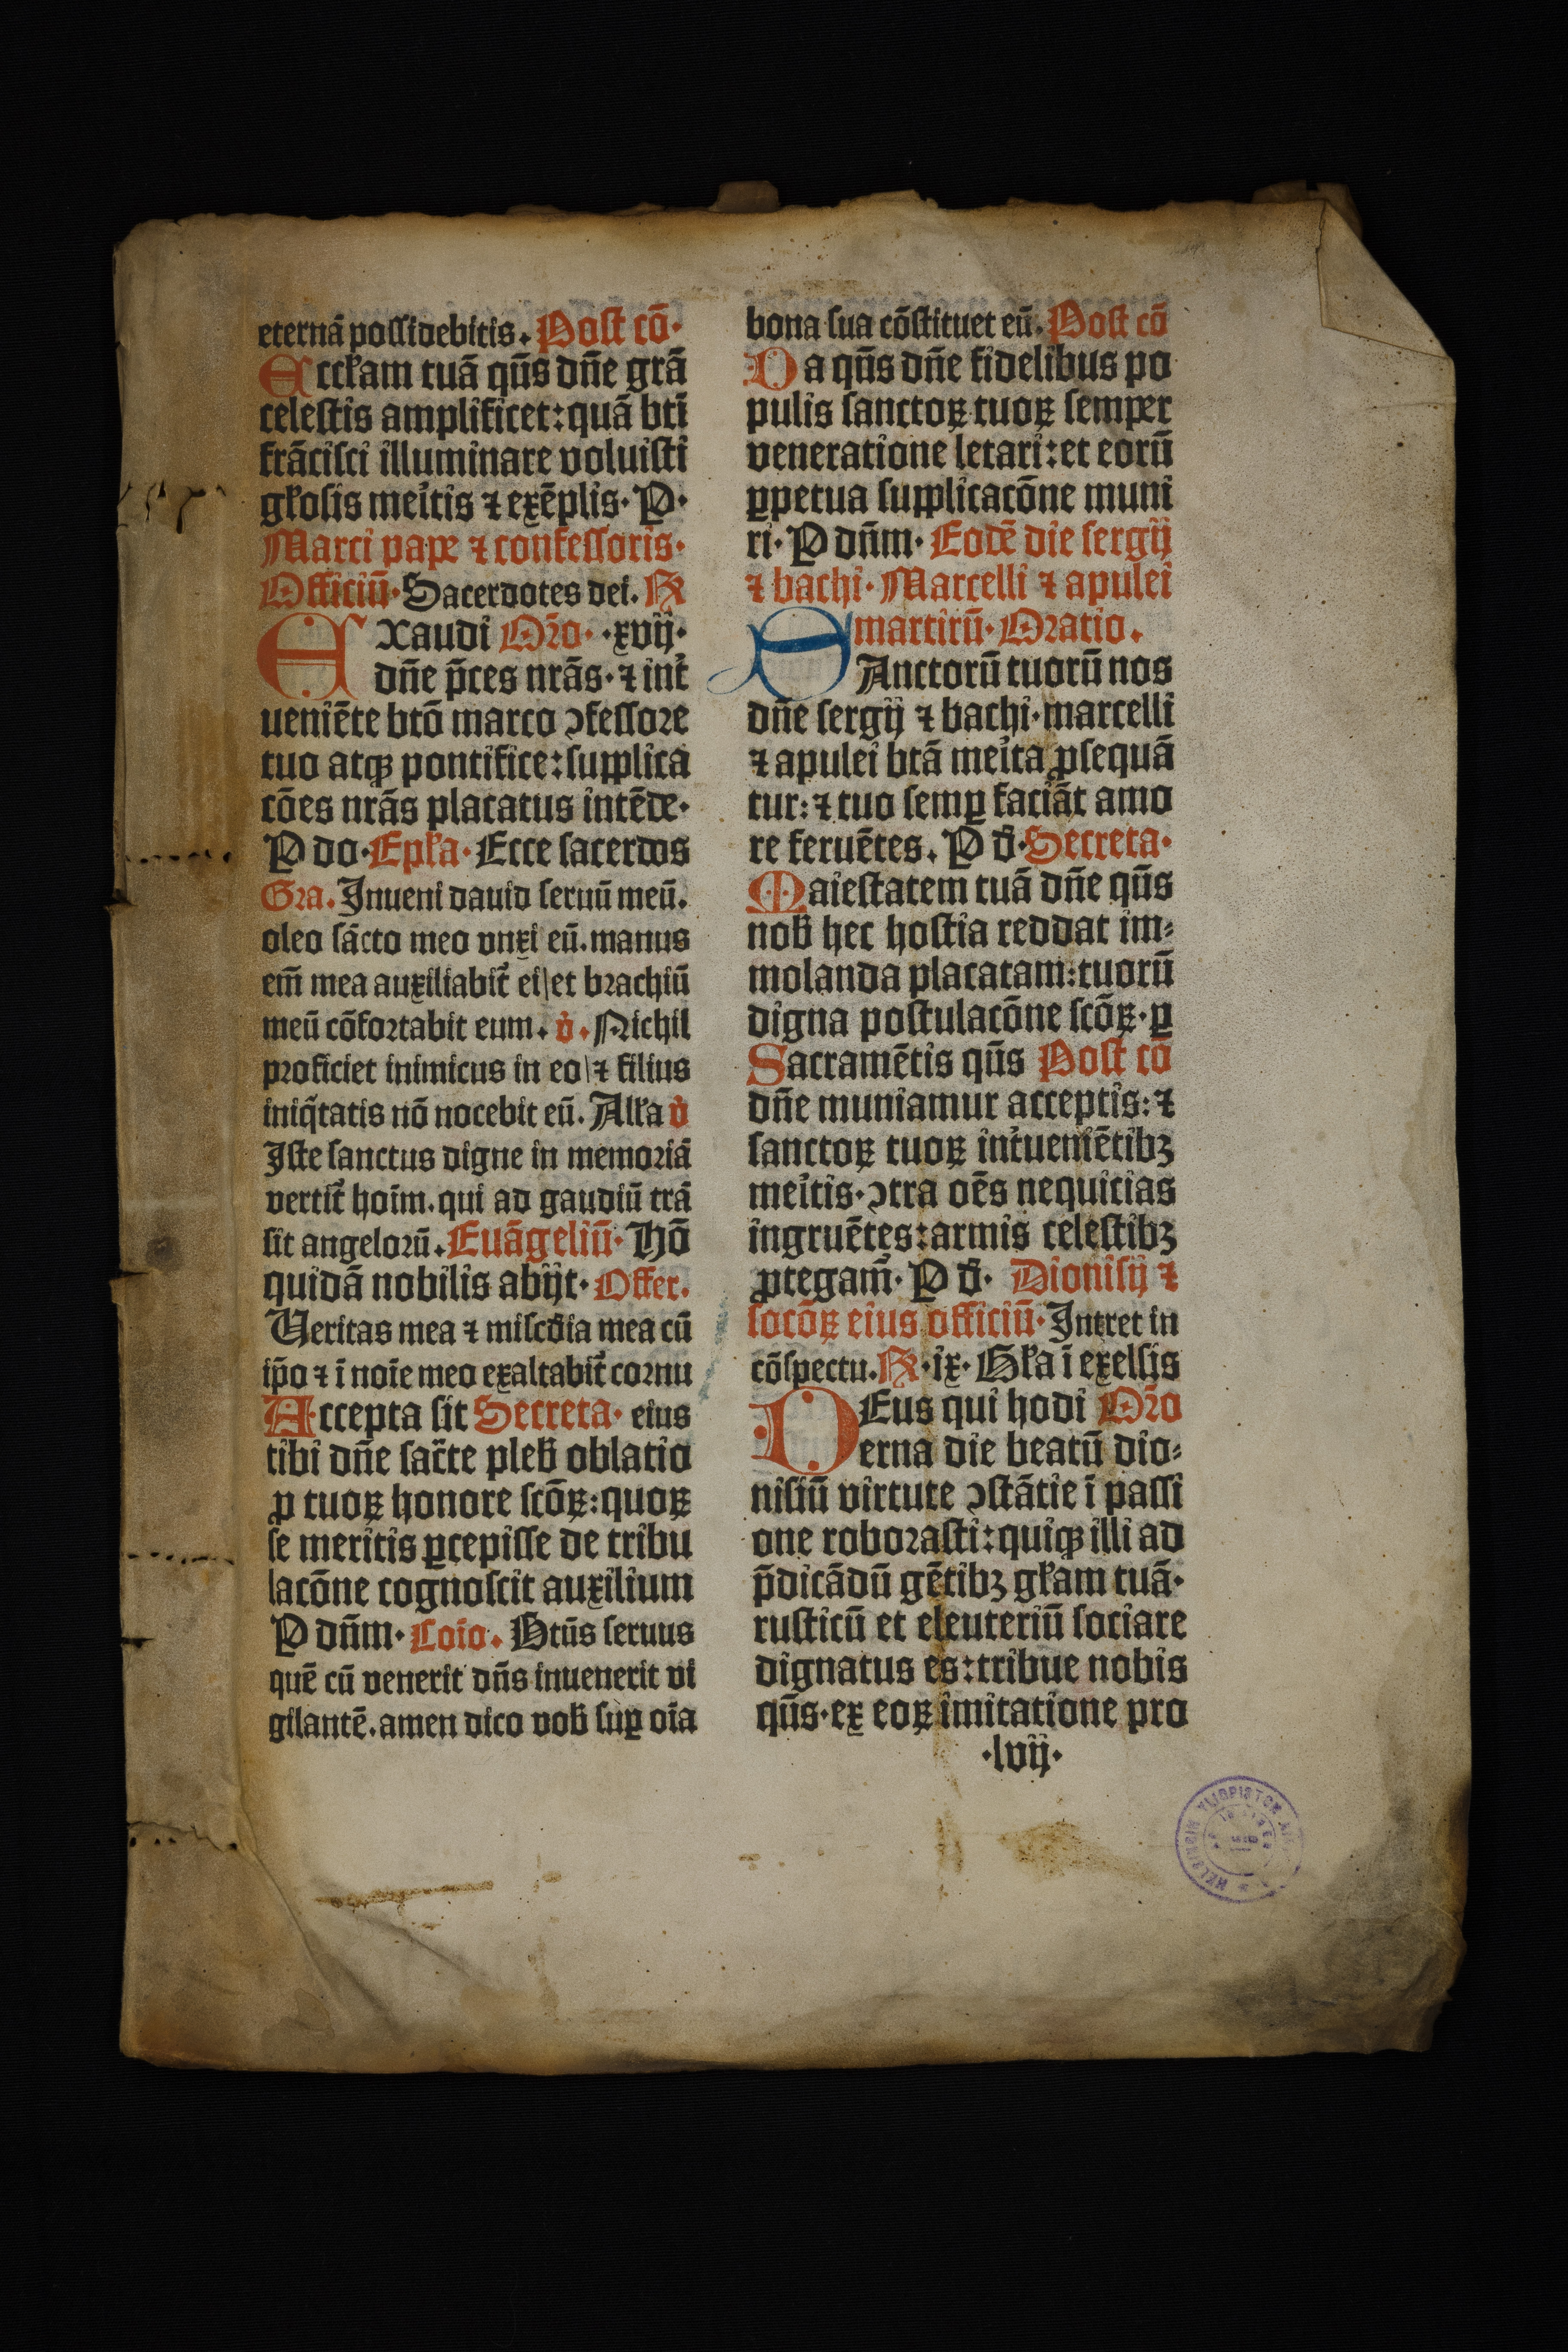 eternā possidebitis. Post cō·
Eccłam tuā qūs dn̄e grā
celestis amplificet: quā btī
frācisci illuminare voluisti
głosis meítis ⁊ exēplis· P·
Marci pape ⁊ confessoris·
Officiū· Sacerdotes dei. R
EXaudi Oro· ·xvij·
dn̄e p̄ces nrās· ⁊ int̉
ueniēte btō marco ↄfessore
tuo atqꝫ pontifice: supplica
cōes nrās placatus intēde·
P do· Epła· Ecce sacerdos
Gra. Inueni dauid seruū meū.
oleo sācto meo vnxi eū. manus
em̄ mea auxiliabit̉ ei\et brachiū
meū cōfortabit eum. v̉. Nichil
proficiet inimicus in eo\⁊ filius
iniq̄tatis nō nocebit eū. Alła v̉
Iste sanctus digne in memoriā
vertit̉ hoīm. qui ad gaudiū trā
sit angelorū. Euāgeliū· Hō
quidā nobilis abijt· Offer.
Veritas mea ⁊ mi̅scdia mea cū
ip̄o ⁊ ī noīe meo exaltabit̉ cornu
Accepta sit Secreta· eius
tibi dn̄e sac̄te pleb̄ oblatio
ꝓ tuoꝝ honore scōꝝ: quoꝝ
se meritis ꝑcepisse de tribu
lacōne cognoscit auxilium
P dn̄m· Coīo. Btūs seruus
quē cū venerit dn̄s inuenerit vi
gilantē. amen dico vob̄ suꝑ oīa
bona sua cōstituet eū. Post cō
Da qūs dn̄e fidelibus po
pulis sanctoꝝ tuoꝝ semper
veneratione letari: et eorū
ꝑpetua supplicacōne muni
ri· P dn̄m· Eodē die sergij
⁊ bachi· Marcelli ⁊ apulei
martirū· Oratio.
SAnctorū tuorū nos
dn̄e sergij ⁊ bachi· marcelli
⁊ apulei btā meíta ꝓsequā
tur: ⁊ tuo semꝑ faciāt amo
re feruētes. P d̄· Secreta·
Maiestatem tuā dn̄e qūs
nob̄ hec hostia reddat im⸗
molanda placatam: tuorū
digna postulacōne scōꝝ· ꝑ
Sacramētis qūs Post cō
dn̄e muniamur acceptis: ⁊
sanctoꝝ tuoꝝ int̉ueniētibꝫ
meítis· ↄtra oēs nequicias
ingruētes: armis celestibꝫ
ꝓtegam̄· P d̄· Dionisij ⁊
socōꝝ eius officiū· Intret in
cōspectu. R· ix· Gła ī exelsis
DEus qui hodi Oro
erna die beatū dio⸗
nisiū virtute ↄstātie ī passi
one roborasti: quiqꝫ illi ad
p̄dicādū gētibꝫ głam tuā·
rusticū et eleuteriū sociare
dignatus es: tribue nobis
qūs· ex eoꝝ imitatione pro
·lvij·